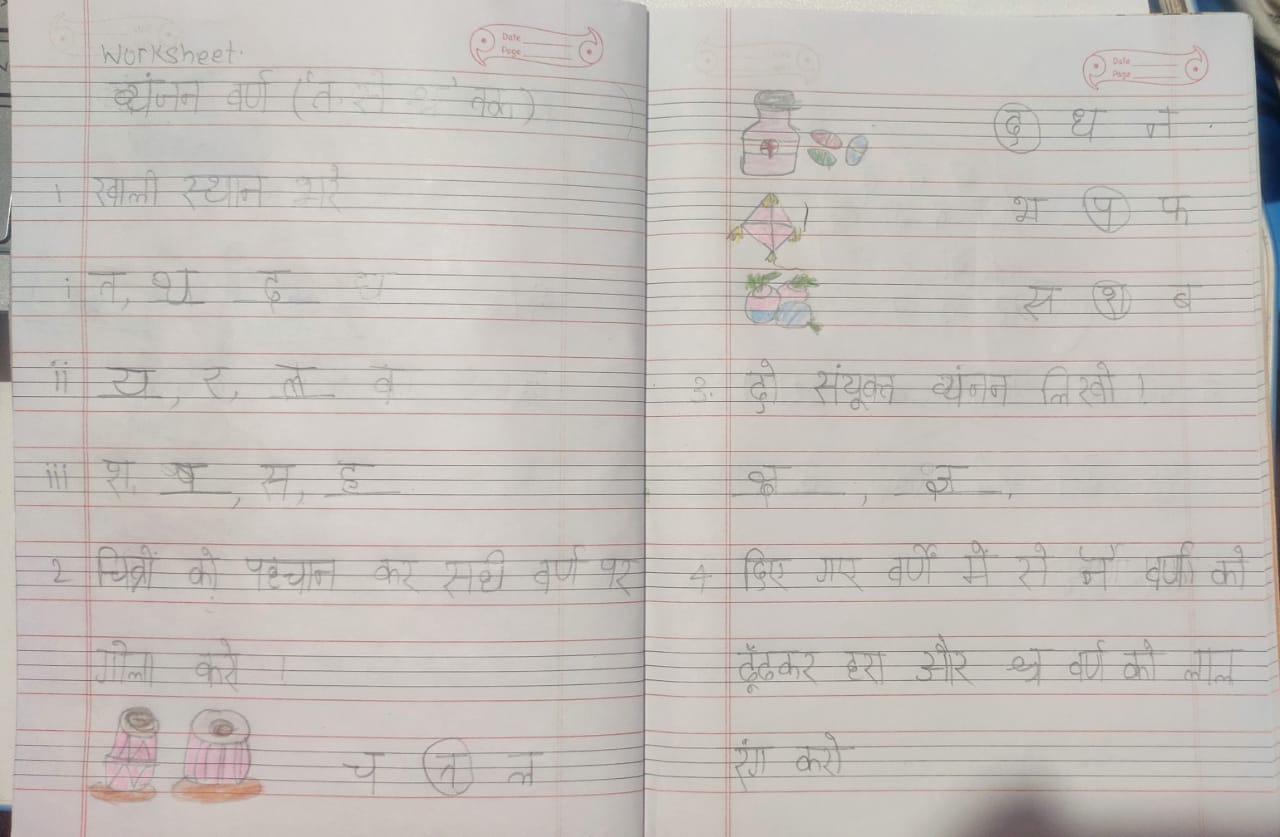 Worksheet.
Date
Page
व्यंजन वर्ण (त से तक)
1 खाली स्थान भरें
i त, थ द ध
ii य, र, ल व
iii श, ष, स, ह
2 चित्रों को पहचान कर सही वर्ण पर
गोला करो ।
च त ल
Date
Page
द ध न
भ प फ
स श ब
3. दो संयूक्त व्यंजन लिखो ।
क्ष, ज्ञ.
4 दिए गए वर्णों में से वर्ण को
ढूँढकर हरा और श्र वर्ण को लाल
रंग करो